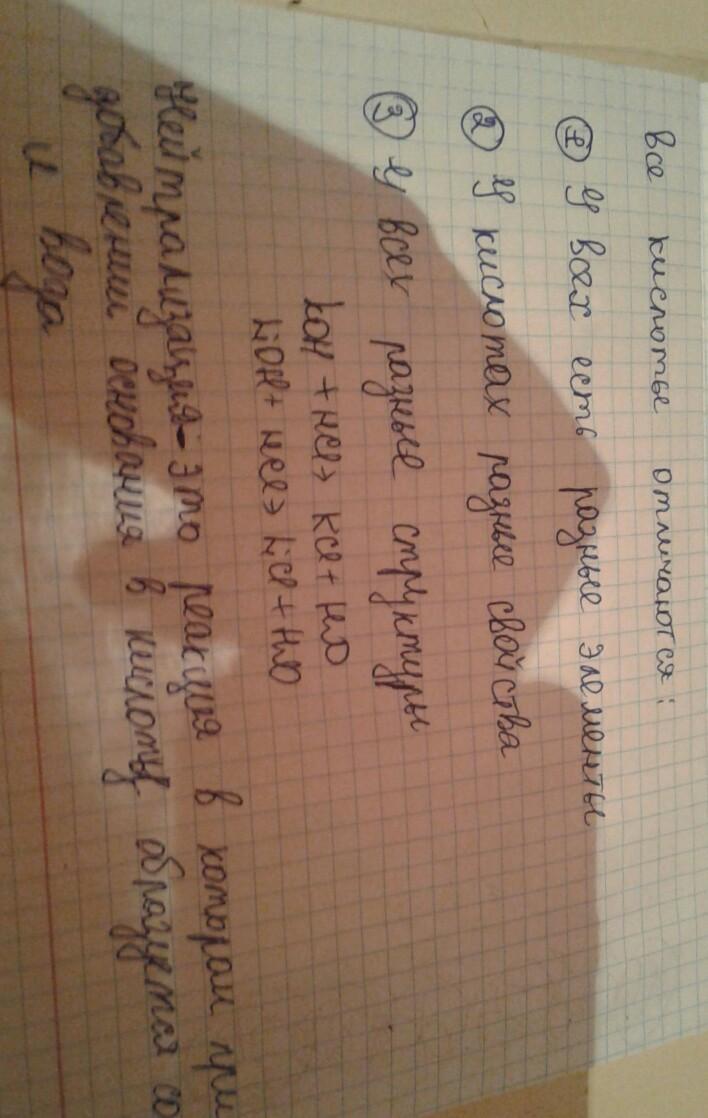 все кислоты отличаются:
① У всех есть разные элементы
② У кислотах разные свойства
③ У всех разные структуры
KOH + HCl → KCl + H₂O
LiOH + HCl → LiCl + H₂O
Нейтрализация - это реакция в которой при
добавлении основания в кислоту образуется со
и вода